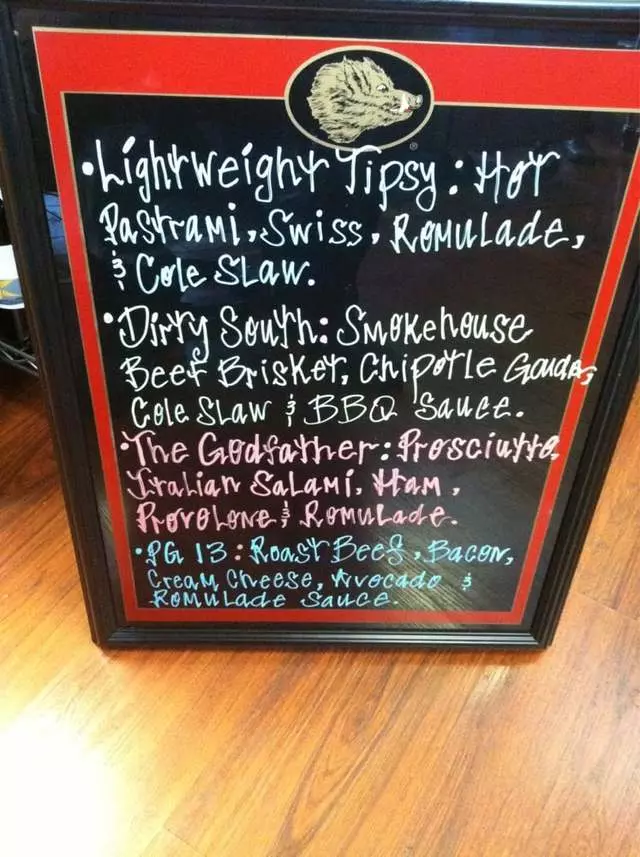 •Lightweight Tipsy: Hot
Pastrami, Swiss, Romulade,
& Cole Slaw.
•Dirty South: Smokehouse
Beef Brisket, Chipotle Gouda,
Cole Slaw & BBQ Sauce.
•The Godfather: Prosciutto,
Italian Salami, Ham,
Provolone & Romulade.
•PG 13: Roast Beef, Bacon,
Cream Cheese, Avocado &
Romulade Sauce.